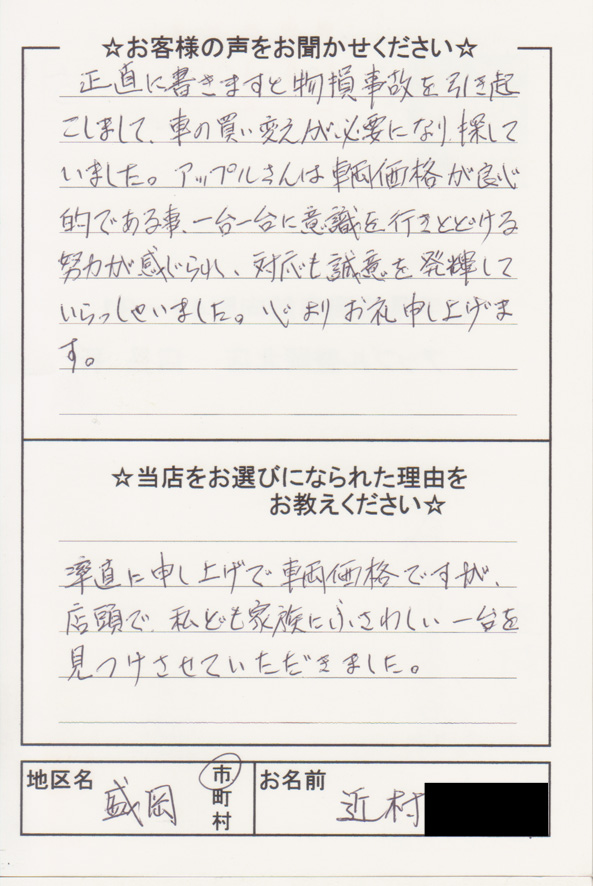 ☆お客様の声をお聞かせください☆
正直に書きますと物損事故を引き起
こしまして、車の買い変えが必要になり、探して
いました。アップルさんは車両価格が良心
的である事、一台一台に意識を行きとどける
努力が感じられ、対応も誠意を発揮して
いらっしゃいました。心よりお礼申し上げま
す。
☆当店をお選びになられた理由を
お教えください☆
率直に申し上げて車両価格ですが、
店頭で、私ども家族にふさわしい一台を
見つけさせていただきました。
地区名 盛岡 市町村 お名前 近村